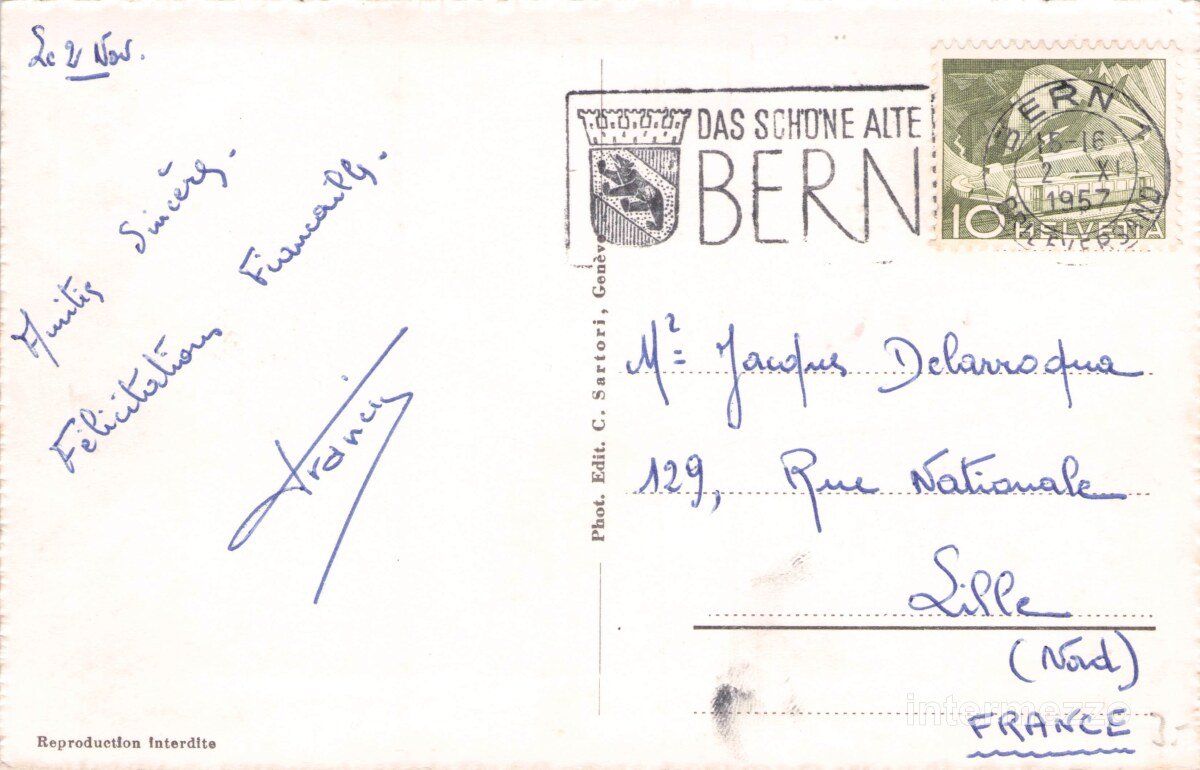 Le 2 Nov.
Amitiés Sincères.
Félicitations Fiancailles.
Francis
Reproduction interdite
Phot. Edit. C. Sartori, Genève
DAS SCHÖNE ALTE
BERN
BERN 1
15-16
2. XI
1957
BRIEFVERSAND
10 HELVETIA
Mr Jacques Delarroqua
129, Rue Nationale
Lille
(Nord)
FRANCE
intermezzo
3.-